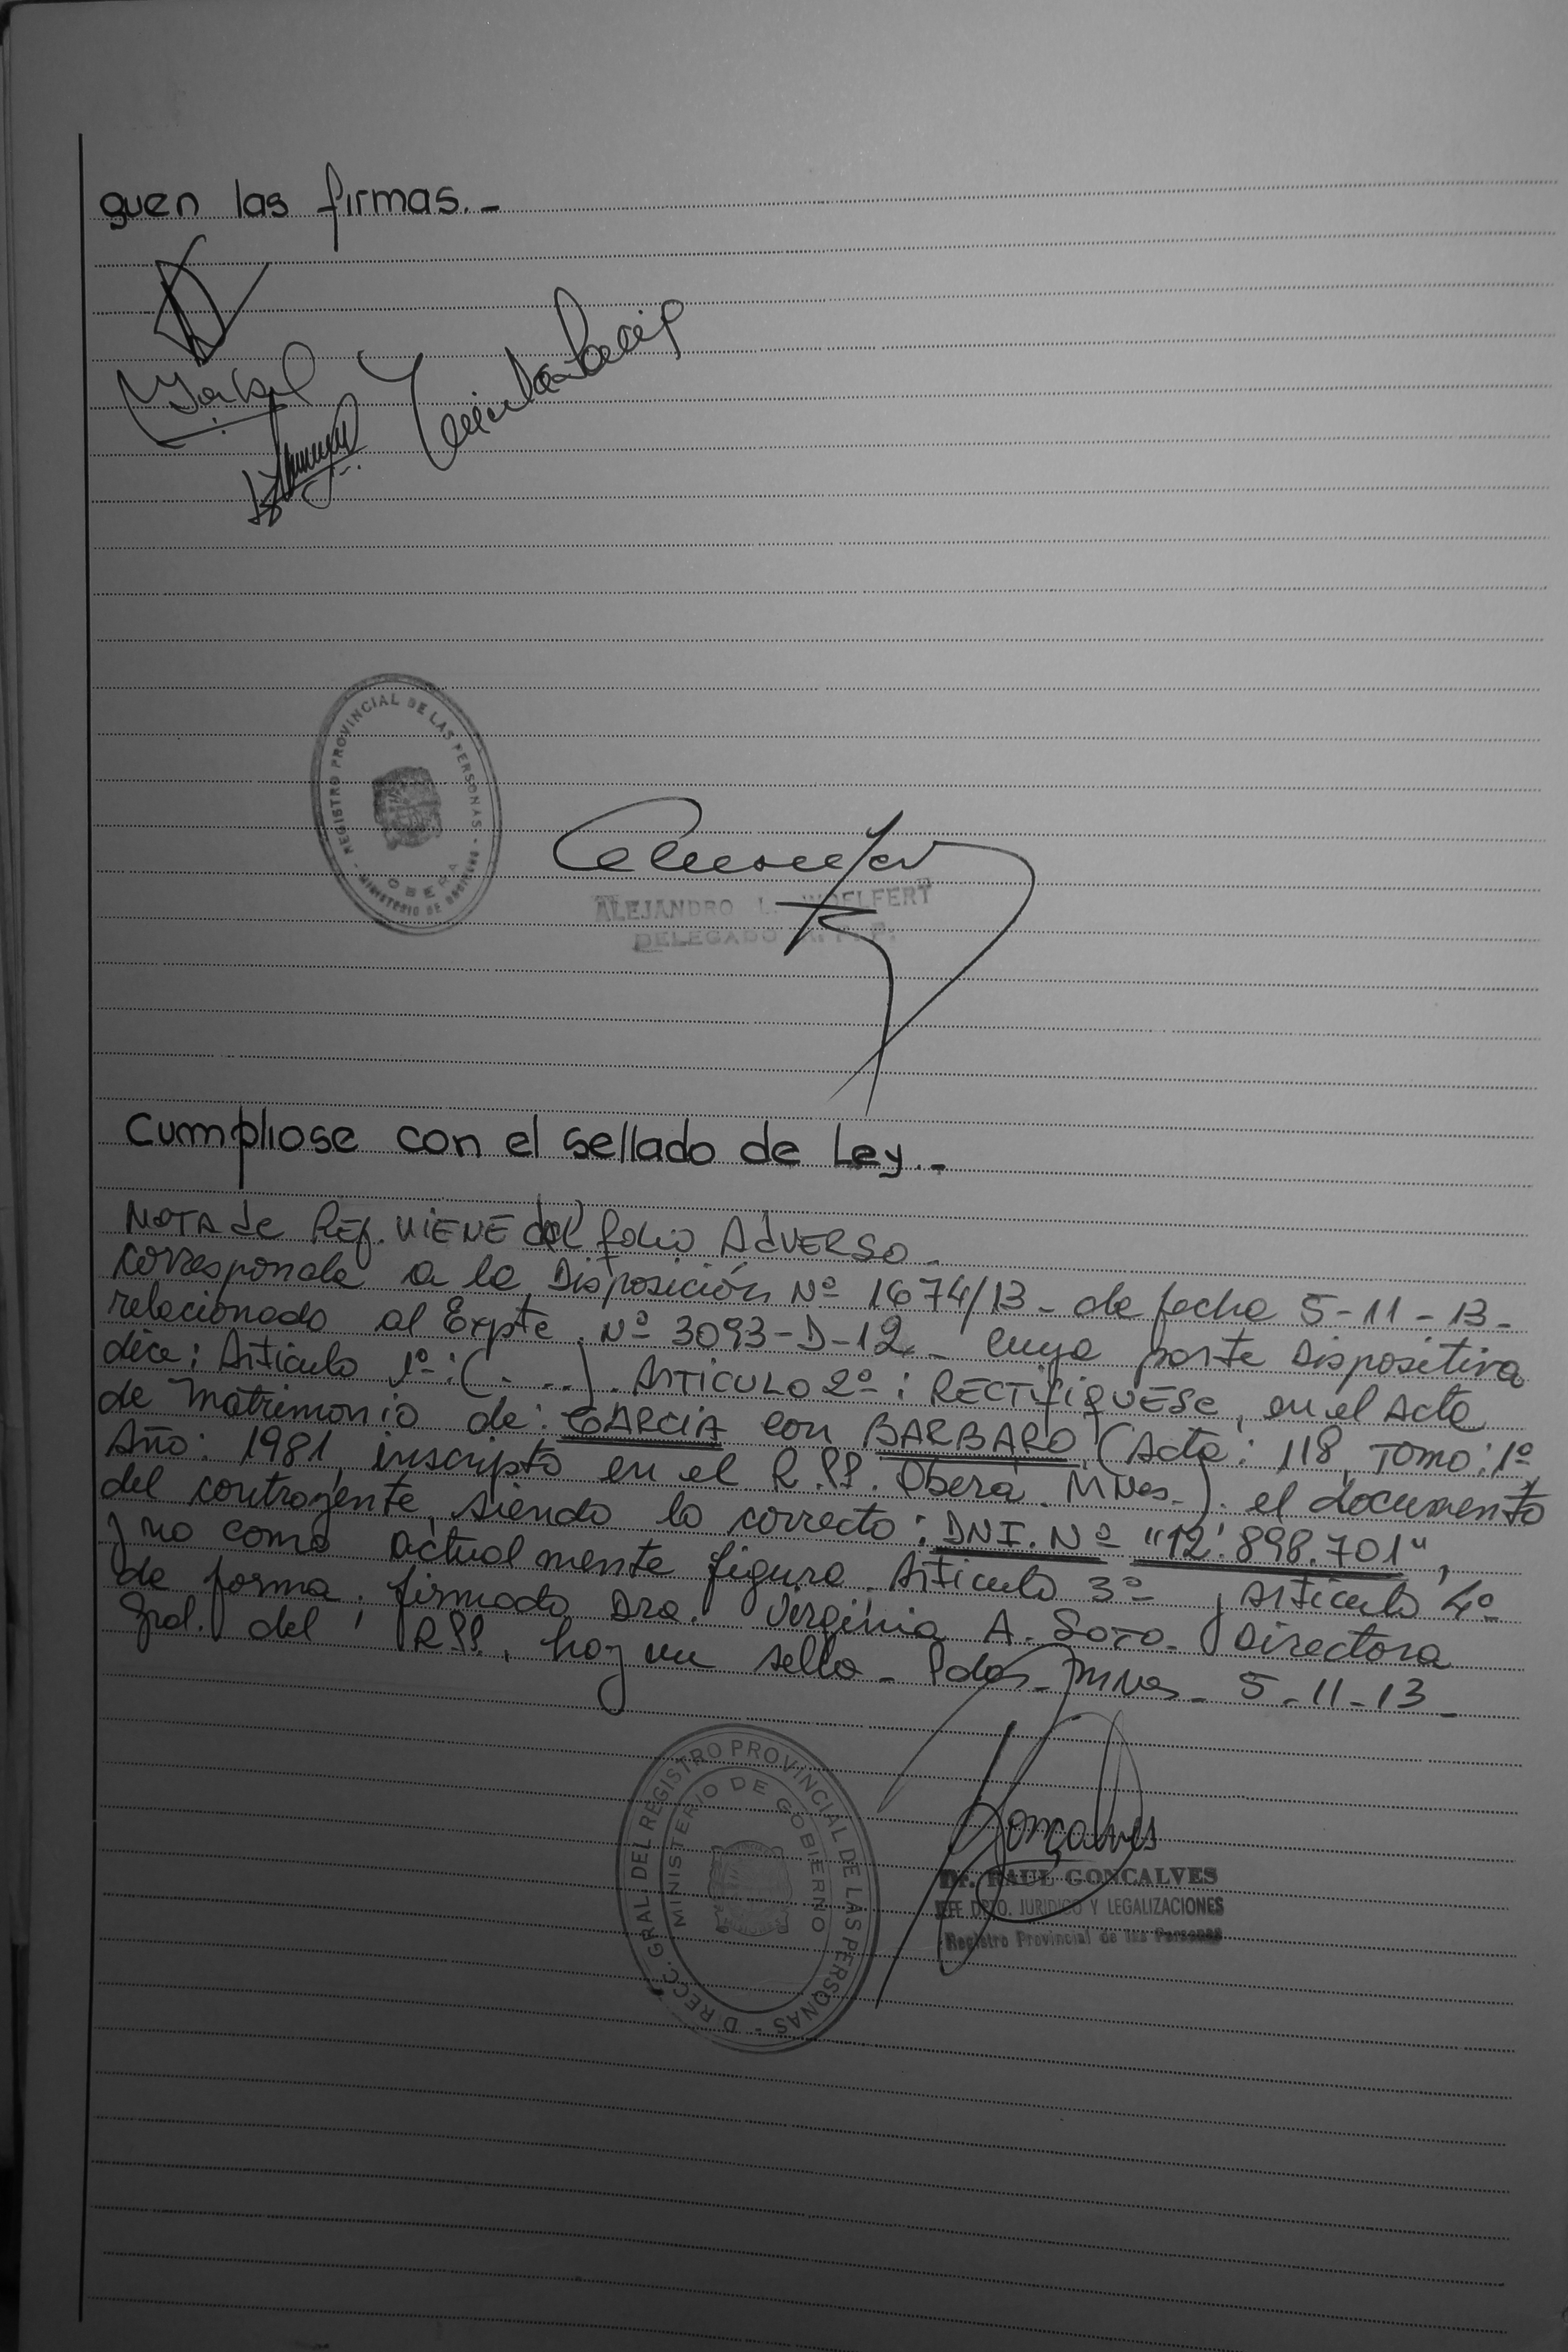 guen las firmas.-
REGISTRO PROVINCIAL DE LAS PERSONAS - MINISTERIO DE GOBIERNO -
OBERA
ALEJANDRO L. WOELFERT
DELEGADO R.P.P.
Cumpliose con el sellado de Ley.-
NOTA de REf. VIENE del folio AdVERSO.-
corresponde a la Disposición Nº 1674/13 - de fecha 5-11-13-
relacionado al Expte. Nº 3093-D-12.- cuya parte Dispositiva
dice: Artículo 1º: (....). ARTICULO 2º: RECTIFIQUESE, en el Acta
de Matrimonio de: GARCIA con BARBARO (Acta: 118, Tomo: 1º,
Año: 1981, inscripto en el R.PP. Oberá. MNes.). el documento
del contrayente, siendo lo correcto: DNI. Nº "12.898.701",
y no como actualmente figura. Artículo 3º y Artículo 4º
de forma. firmado Dra. Virginia A. Soto. Directora
Gral. del RPP., hay un sello - Pdas. Mnes - 5-11-13-
DIRECC. GRAL. DEL REGISTRO PROVINCIAL DE LAS PERSONAS -
MINISTERIO DE GOBIERNO
Gonçalves
Dr. RAUL GONCALVES
JEFE DPTO. JURIDICO Y LEGALIZACIONES
Registro Provincial de las Personas